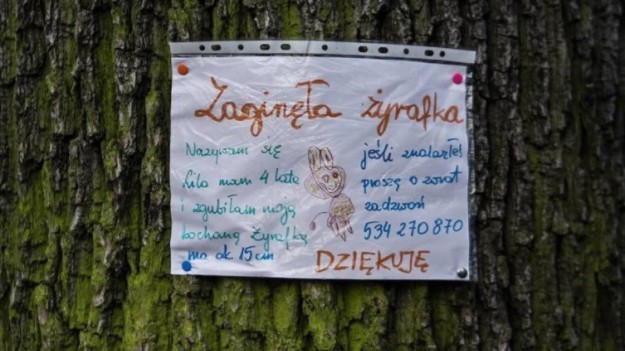 Zaginęła żyrafka
Nazywam się
Lila mam 4 lata
i zgubiłam moją
kochaną Żyrafkę
ma ok 15cm
jeśli znalazłeś
proszę o zwrot
zadzwoń
534 270 870
DZIĘKUJĘ